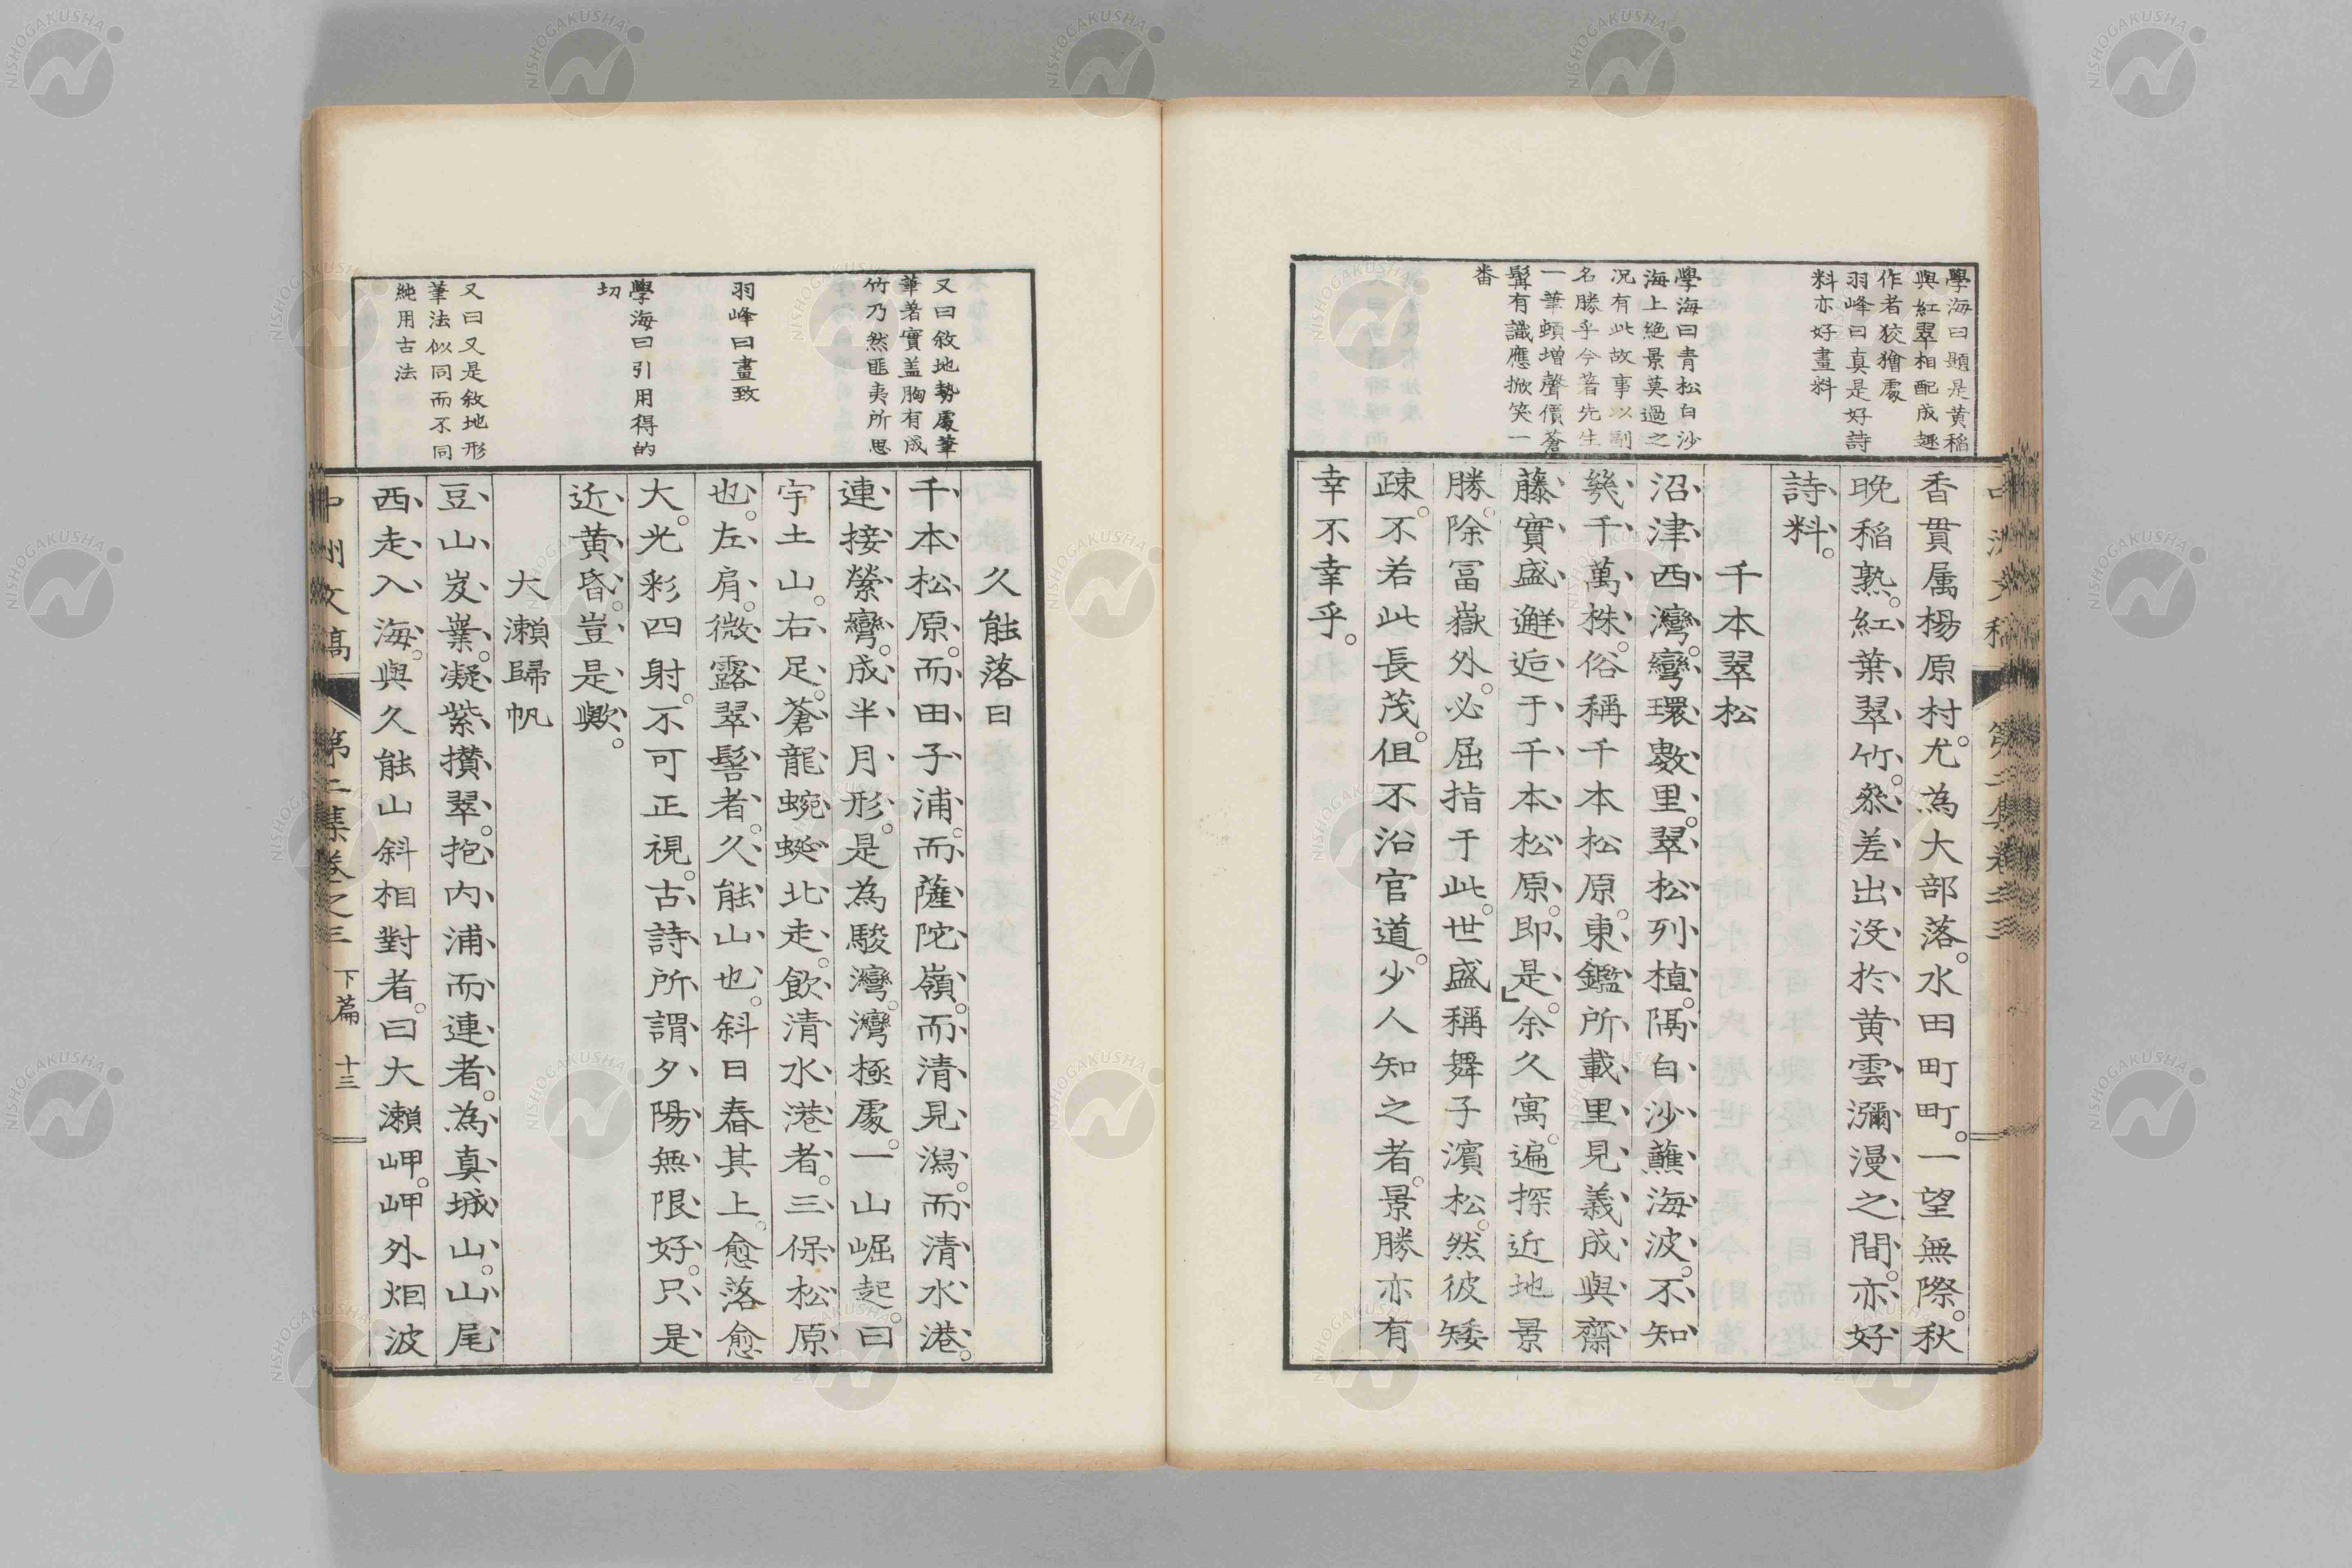 學海曰題是黄稲
與紅翠相配成趣
作者狡獪處
羽峰曰真是好詩
料亦好畫料
學海曰青松白沙
海上絶景莫過之
况有此故事以副
名勝乎今著先生
一筆頓増聲價蒼
髯有識應掀笑一
番
香貫属楊原村。尤為大部落。水田町町。一望無際。秋
晩稲熟。紅葉翠竹。叅差出没於黄雲瀰漫之間。亦好
詩料。
千本翠松
沼津西灣。彎環數里。翠松列植。隔白沙蘸海波。不知
幾千萬株。俗稱千本松原。東鑑所載里見義成與齋
藤實盛邂逅于千本松原。即是。余久寓。遍探近地景
勝。除冨嶽外。必屈指于此。世盛稱舞子濱松。然彼矮
疎。不若此長茂。但不沿官道。少人知之者。景勝亦有
幸不幸乎。
又曰敘地勢處筆
筆著實盖胸有成
竹乃然匪夷所思
羽峰曰畫致
學海曰引用得的
切
又曰又是敘地形
筆法似同而不同
純用古法
久能落日
千本松原。而田子浦。而薩陀嶺。而清見潟。而清水港。
連接縈彎。成半月形。是為駿灣。灣極處。一山崛起。曰
宇土山。右足。蒼龍蜿蜒北走。飲清水港者。三保松原
也。左肩。微露翠髻者。久能山也。斜日舂其上。愈落愈
大。光彩四射。不可正視。古詩所謂夕陽無限好。只是
近黄昏。豈是歟。
大瀬歸帆
豆山岌嶪。凝紫攅翠。抱内浦而連者。為真城山。山尾
西走入海。與久能山斜相對者。曰大瀬岬。岬外烟波
中洲文稿 第二集卷之三 下篇 十三